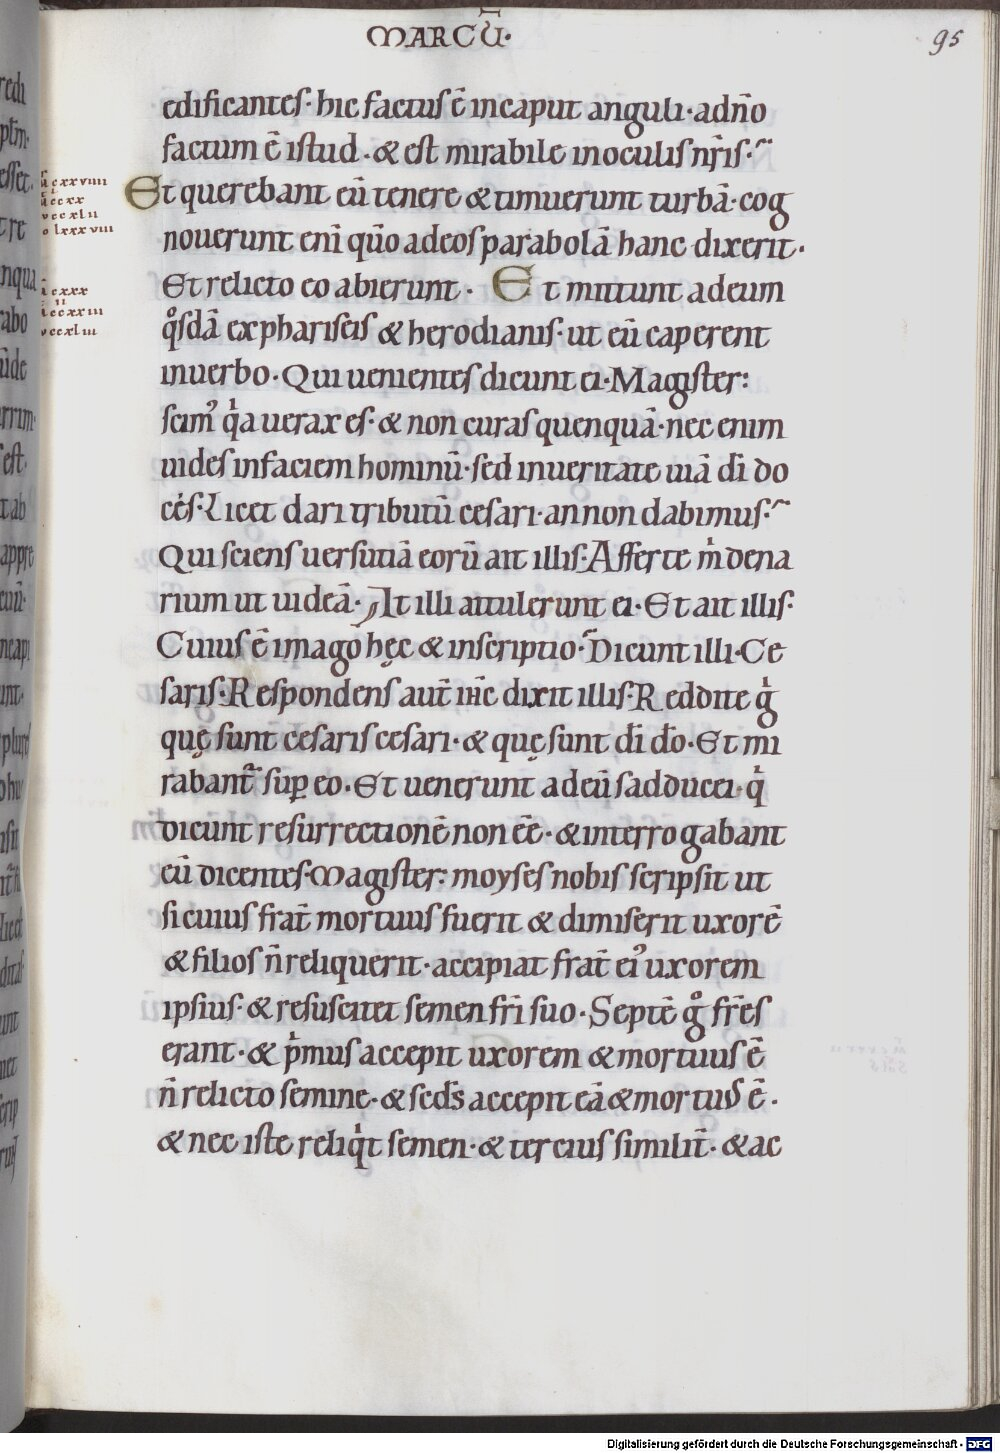 MARCŪ·
95
edificantes· hic factus ē in caput anguli· a dño
factum ē istud· & est mirabile in oculis nr̄is·
Et querebant eū tenere & timuerunt turbā· cog
nouerunt eni̅ qūo ad eos parabolā hanc dixerit·
Et relicto eo abierunt· Et mittunt ad eum
qͦsdā ex phariseis & herodianis· ut eū caperent
in uerbo· Qui uenientes dicunt ei· Magister:
scimꝰ qͥa uerax es· & non curas quenquā· nec enim
uides in faciem hominū· sed in ueritate uiā dī do
ces· Licet dari tributū cesari· an non dabimus·
Qui sciens uersutiā eorū ait illis· Afferte m̍ dena
rium ut uideā· At illi attulerunt ei· Et ait illis·
Cuius ē imago hęc & inscriptio· Dicunt illi· Ce
saris· Respondens aut̄ ih̄c dixit illis· Reddite gͥ
quę sunt cesaris cesari· & quę sunt dī dō· Et mi
rabant̄ suꝑ eo· Et uenerunt ad eū sadducei· qͥ
dicunt resurrectionē non eē· & interrogabant
eū dicentes· Magister: moyses nobis scripsit ut
si cuius frat̄ mortuus fuerit & dimiserit uxorē
& filios n̄ reliquerit· accipiat frat̄ eiꝰ uxorem
ipsius· & resuscitet semen frī suo· Septē gͦ fr̄es
erant· & pͥmus accepit uxorem & mortuus ē
n̄ relicto semine· & scd̄s accepit eā & mortuus ē·
& nec iste reliqͥt semen· & tercius similit̄· & ac
cxxviiii
ccxx
ccxlii
lxxxviii
cxxx
ccxxiii
ccxliii
Digitalisierung gefördert durch die Deutsche Forschungsgemeinschaft - DFG